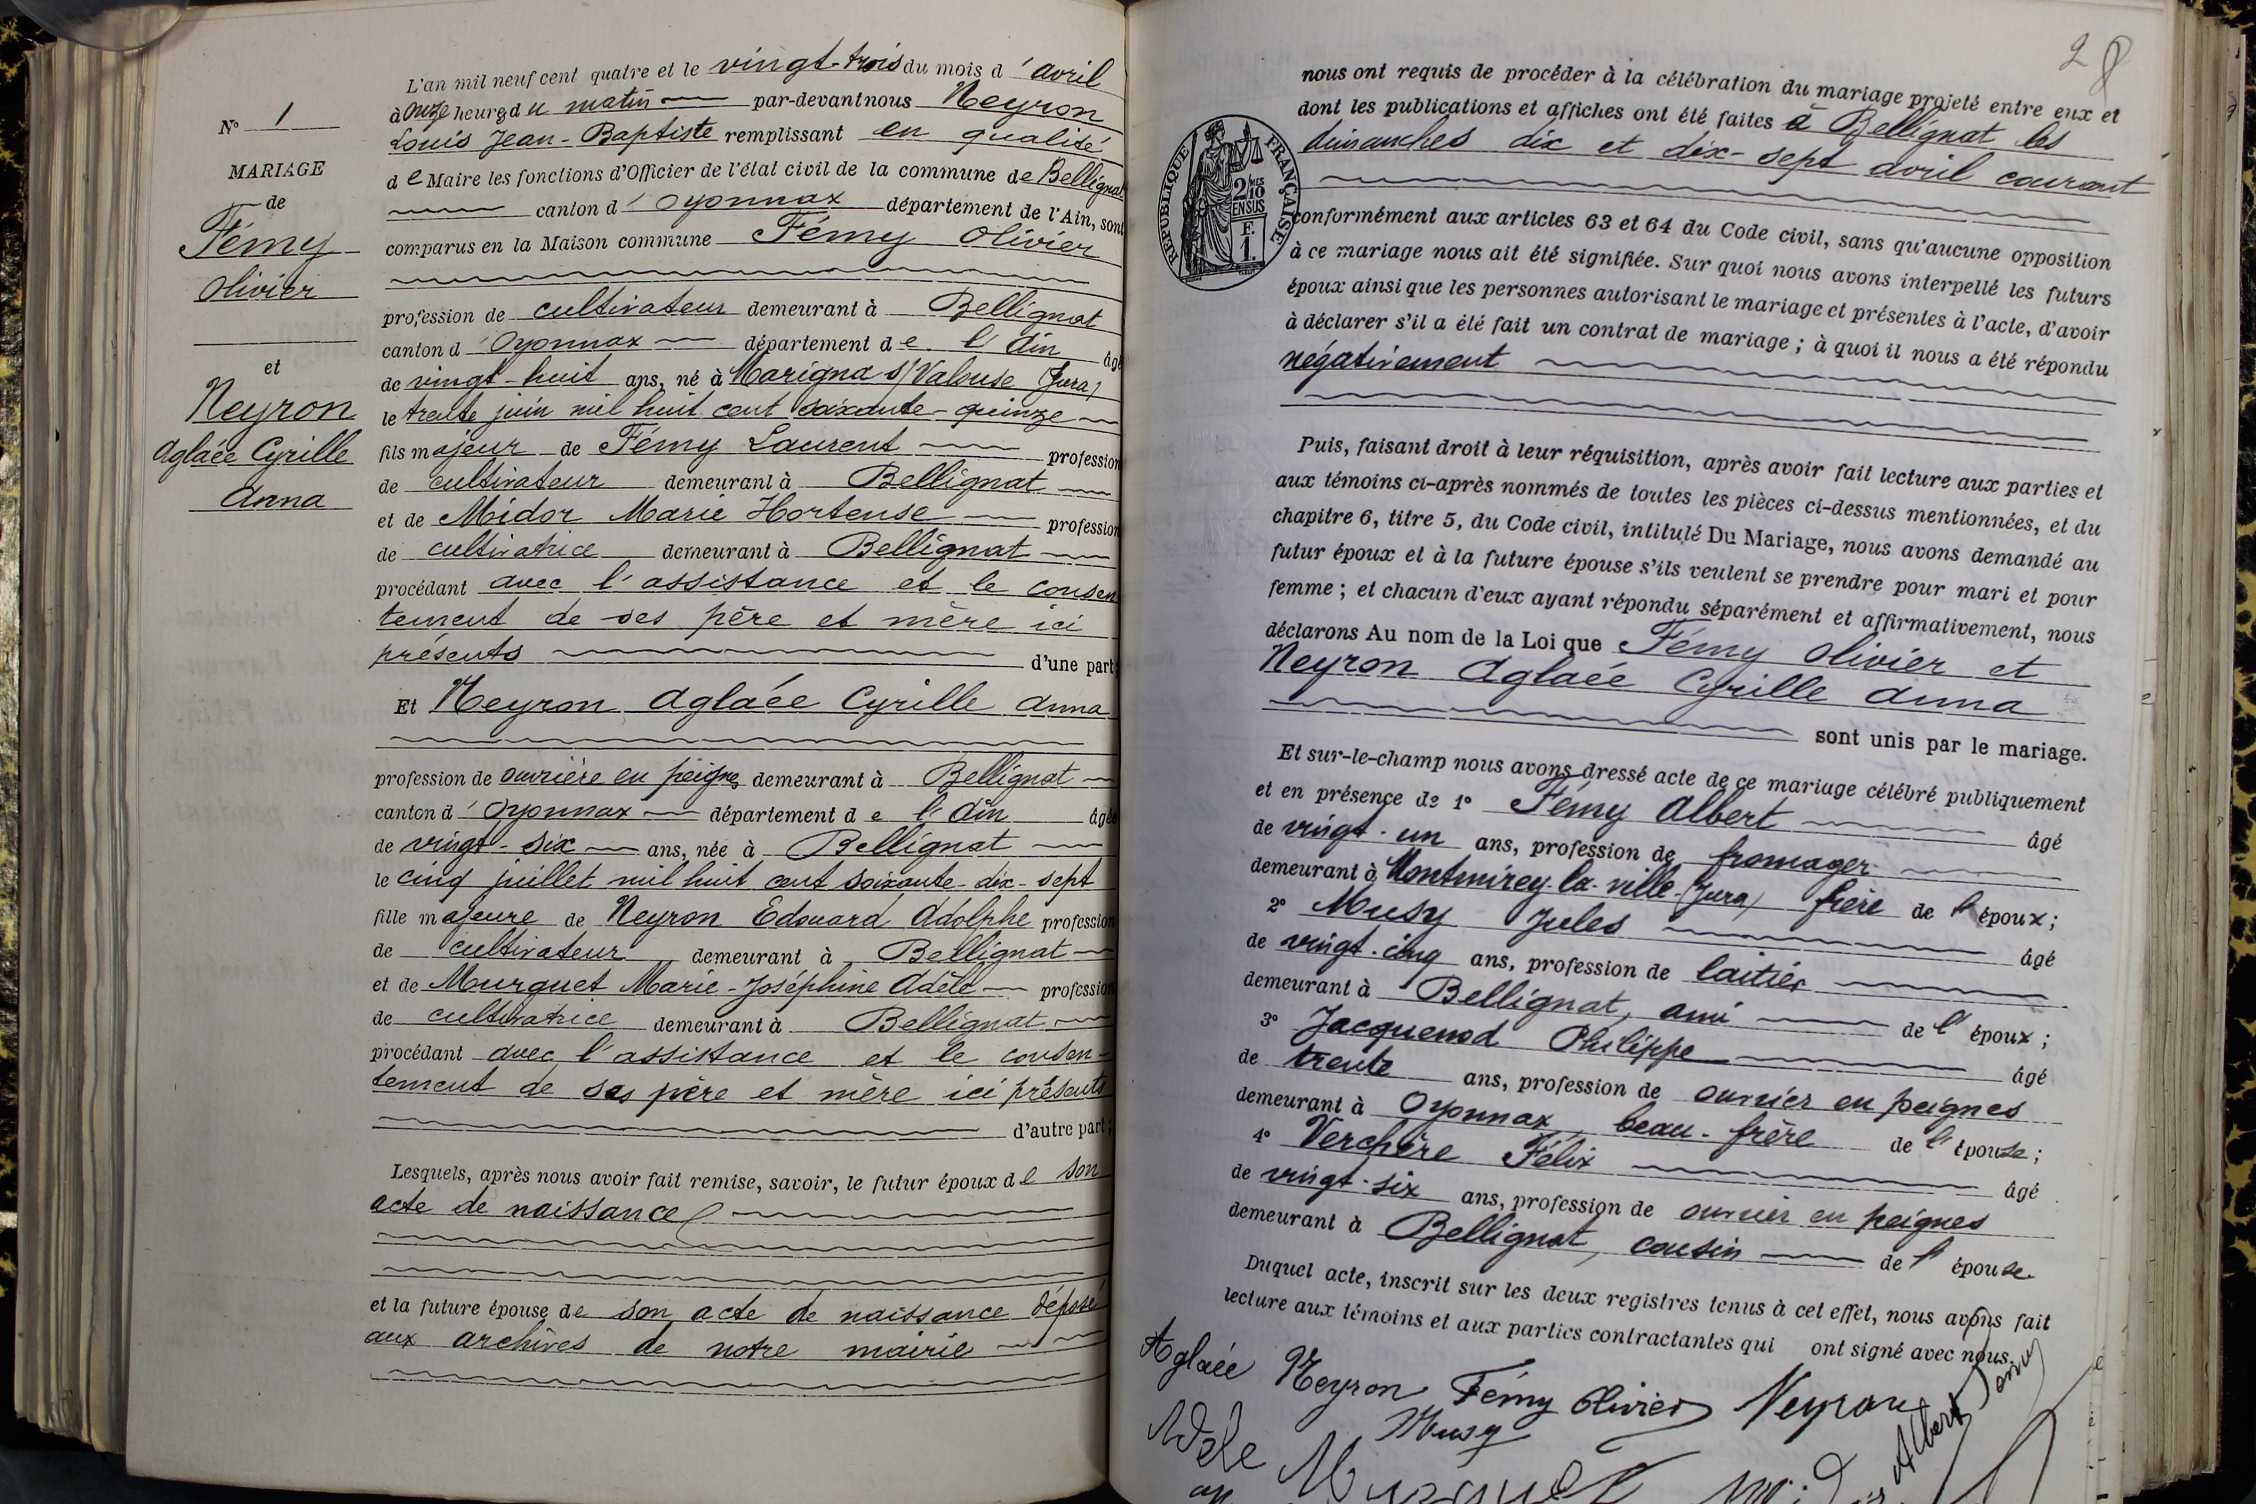 L'an mil neuf cent quatre et le vingt-trois du mois d'avril
à onze heures du matin par-devant nous Neyron
Louis Jean-Baptiste remplissant en qualité
de Maire les fonctions d'Officier de l'état civil de la commune de Bellignat
canton d'Oyonnax département de l'Ain, sont
comparus en la Maison commune Fémy Olivier
profession de cultivateur demeurant à Bellignat
canton d'Oyonnax département de l'Ain âgé
de vingt-huit ans, né à Marigna s/Valouse (Jura)
le trente juin mil huit cent soixante-quinze
fils majeur de Fémy Laurent profession
de cultivateur demeurant à Bellignat
et de Midor Marie Hortense profession
de cultivatrice demeurant à Bellignat
procédant avec l'assistance et le consen
tement de ses père et mère ici
présents d'une part;
Et Neyron Aglaée Cyrille Anna
profession de ouvrière en peignes demeurant à Bellignat
canton d'Oyonnax département de l'Ain âgée
de vingt-six ans, née à Bellignat
le cinq juillet mil huit cent soixante-dix-sept
fille majeure de Neyron Edouard Adolphe profession
de cultivateur demeurant à Bellignat
et de Murguet Marie-Joséphine Adèle profession
de cultivatrice demeurant à Bellignat
procédant avec l'assistance et le consen-
tement de ses père et mère ici présents
d'autre part;
Lesquels, après nous avoir fait remise, savoir, le futur époux de son
acte de naissance
et la future épouse de son acte de naissance déposé
aux archives de notre mairie
N° 1
MARIAGE
de
Fémy
Olivier
et
Neyron
Aglaée Cyrille
Anna
28
nous ont requis de procéder à la célébration du mariage projeté entre eux et
dont les publications et affiches ont été faites à Bellignat les
dimanches dix et dix-sept avril courant
conformément aux articles 63 et 64 du Code civil, sans qu'aucune opposition
à ce mariage nous ait été signifiée. Sur quoi nous avons interpellé les futurs
époux ainsi que les personnes autorisant le mariage et présentes à l'acte, d'avoir
à déclarer s'il a été fait un contrat de mariage; à quoi il nous a été répondu
négativement
RÉPUBLIQUE FRANÇAISE
2/10 MES
EN SUS
F.
1.
Puis, faisant droit à leur réquisition, après avoir fait lecture aux parties et
aux témoins ci-après nommés de toutes les pièces ci-dessus mentionnées, et du
chapitre 6, titre 5, du Code civil, intitulé Du Mariage, nous avons demandé au
futur époux et à la future épouse s'ils veulent se prendre pour mari et pour
femme; et chacun d'eux ayant répondu séparément et affirmativement, nous
déclarons Au nom de la Loi que Fémy Olivier et
Neyron Aglaée Cyrille Anna
sont unis par le mariage.
Et sur-le-champ nous avons dressé acte de ce mariage célébré publiquement
et en présence de 1° Fémy Albert âgé
de vingt-un ans, profession de fromager
demeurant à Montmirey-la-ville (Jura) frère de l'époux;
2° Musy Jules âgé
de vingt-cinq ans, profession de laitier
demeurant à Bellignat, ami de l'époux;
3° Jacquemod Philippe âgé
de trente ans, profession de ouvrier en peignes
demeurant à Oyonnax, beau-frère de l'épouse;
4° Verchère Félix âgé
de vingt-six ans, profession de ouvrier en peignes
demeurant à Bellignat, cousin de l'épouse.
Duquel acte, inscrit sur les deux registres tenus à cet effet, nous avons fait
lecture aux témoins et aux parties contractantes qui ont signé avec nous.
Aglaée Neyron Fémy Olivier Neyron
Musy Albert
Adèle Murguet